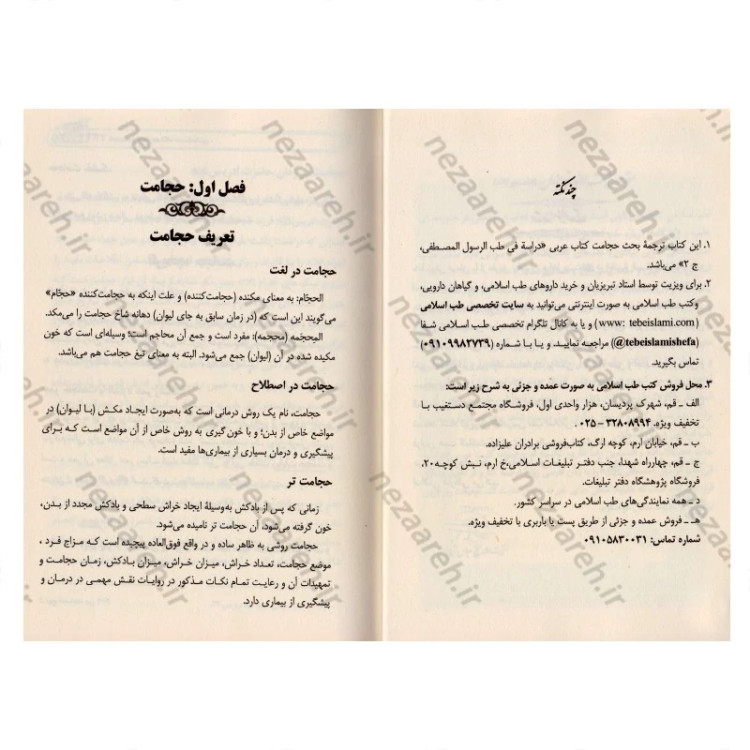 چند نکته
۱. این کتاب ترجمهٔ بحث حجامت کتاب عربی «دراسة فی طب الرسول المصطفی،
ج ۲» می‌باشد.
۲. برای ویزیت توسط استاد تبریزیان و خرید داروهای طب اسلامی، و گیاهان دارویی،
وکتب طب اسلامی به صورت اینترنتی می‌توانید به سایت تخصصی طب اسلامی
(www: tebeislami.com) و یا به کانال تلگرام تخصصی طب اسلامی شفا
(@tebeislamishefa) مراجعه نمایید، و یا با شماره (۰۹۱۰۹۹۸۲۷۳۹)
تماس بگیرید.
۳. محل فروش کتب طب اسلامی به صورت عمده و جزئی به شرح زیر است:
الف ـ قم، شهرک پردیسان، هزار واحدی اول، فروشگاه مجتمع دستغیب با
تخفیف ویژه. ۳۲۸۰۸۹۹۴ - ۰۲۵
ب ـ قم، خیابان ارم، کوچه ارگ، کتاب‌فروشی برادران علیزاده.
ج ـ قم، چهارراه شهدا، جنب دفتر تبلیغات اسلامی،خ ارم، نبش کوچه۲۰،
فروشگاه پژوهشگاه دفتر تبلیغات.
د ـ همه نمایندگی‌های طب اسلامی در سراسر کشور.
هـ ـ فروش عمده و جزئی از طریق پست یا باربری با تخفیف ویژه.
شماره تماس: ۰۹۱۰۵۸۳۰۰۳۱
فصل اول: حجامت
تعریف حجامت
حجامت در لغت
الحجّام: به معنای مکنده (حجامت‌کننده) و علت اینکه به حجامت‌کننده «حجّام»
می‌گویند این است که (در زمان سابق به جای لیوان) دهانه شاخ حجامت را می‌مکد.
المحجمه (محجمه): مفرد است و جمع آن محاجم است؛ وسیله‌ای است که خون
مکیده شده در آن (لیوان) جمع می‌شود. البته به معنای تیغ حجامت هم می‌باشد.
حجامت در اصطلاح
حجامت، نام یک روش درمانی است که به‌صورت ایجاد مکش (با لیوان) در
مواضع خاص از بدن؛ و با خون گیری به روش خاص از آن مواضع است که برای
پیشگیری و درمان بسیاری از بیماری‌ها مفید است.
حجامت تر
زمانی که پس از بادکش به‌وسیلهٔ ایجاد خراش سطحی و بادکش مجدد از بدن،
خون گرفته می‌شود، آن حجامت تر نامیده می‌شود.
حجامت روشی به ظاهر ساده و در واقع فوق‌العاده پیچیده است که مزاج فرد ،
موضع حجامت، تعداد خراش، میزان خراش، میزان بادکش، زمان حجامت و
تمهیدات آن و رعایت تمام نکات مذکور در روایات نقش مهمی در درمان و
پیشگیری از بیماری دارد.
nezaareh.ir
nezaareh.ir
nezaareh.ir
nezaareh.ir
nezaareh.ir
nezaareh.ir
nezaareh.ir
nezaareh.ir
nezaareh.ir